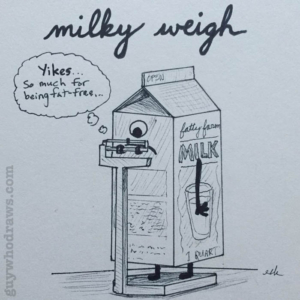 milky weigh
Yikes...
So much for
being fat-free...
OPEN
fatty farms
MILK
1 QUART
esk
guywhodraws.com